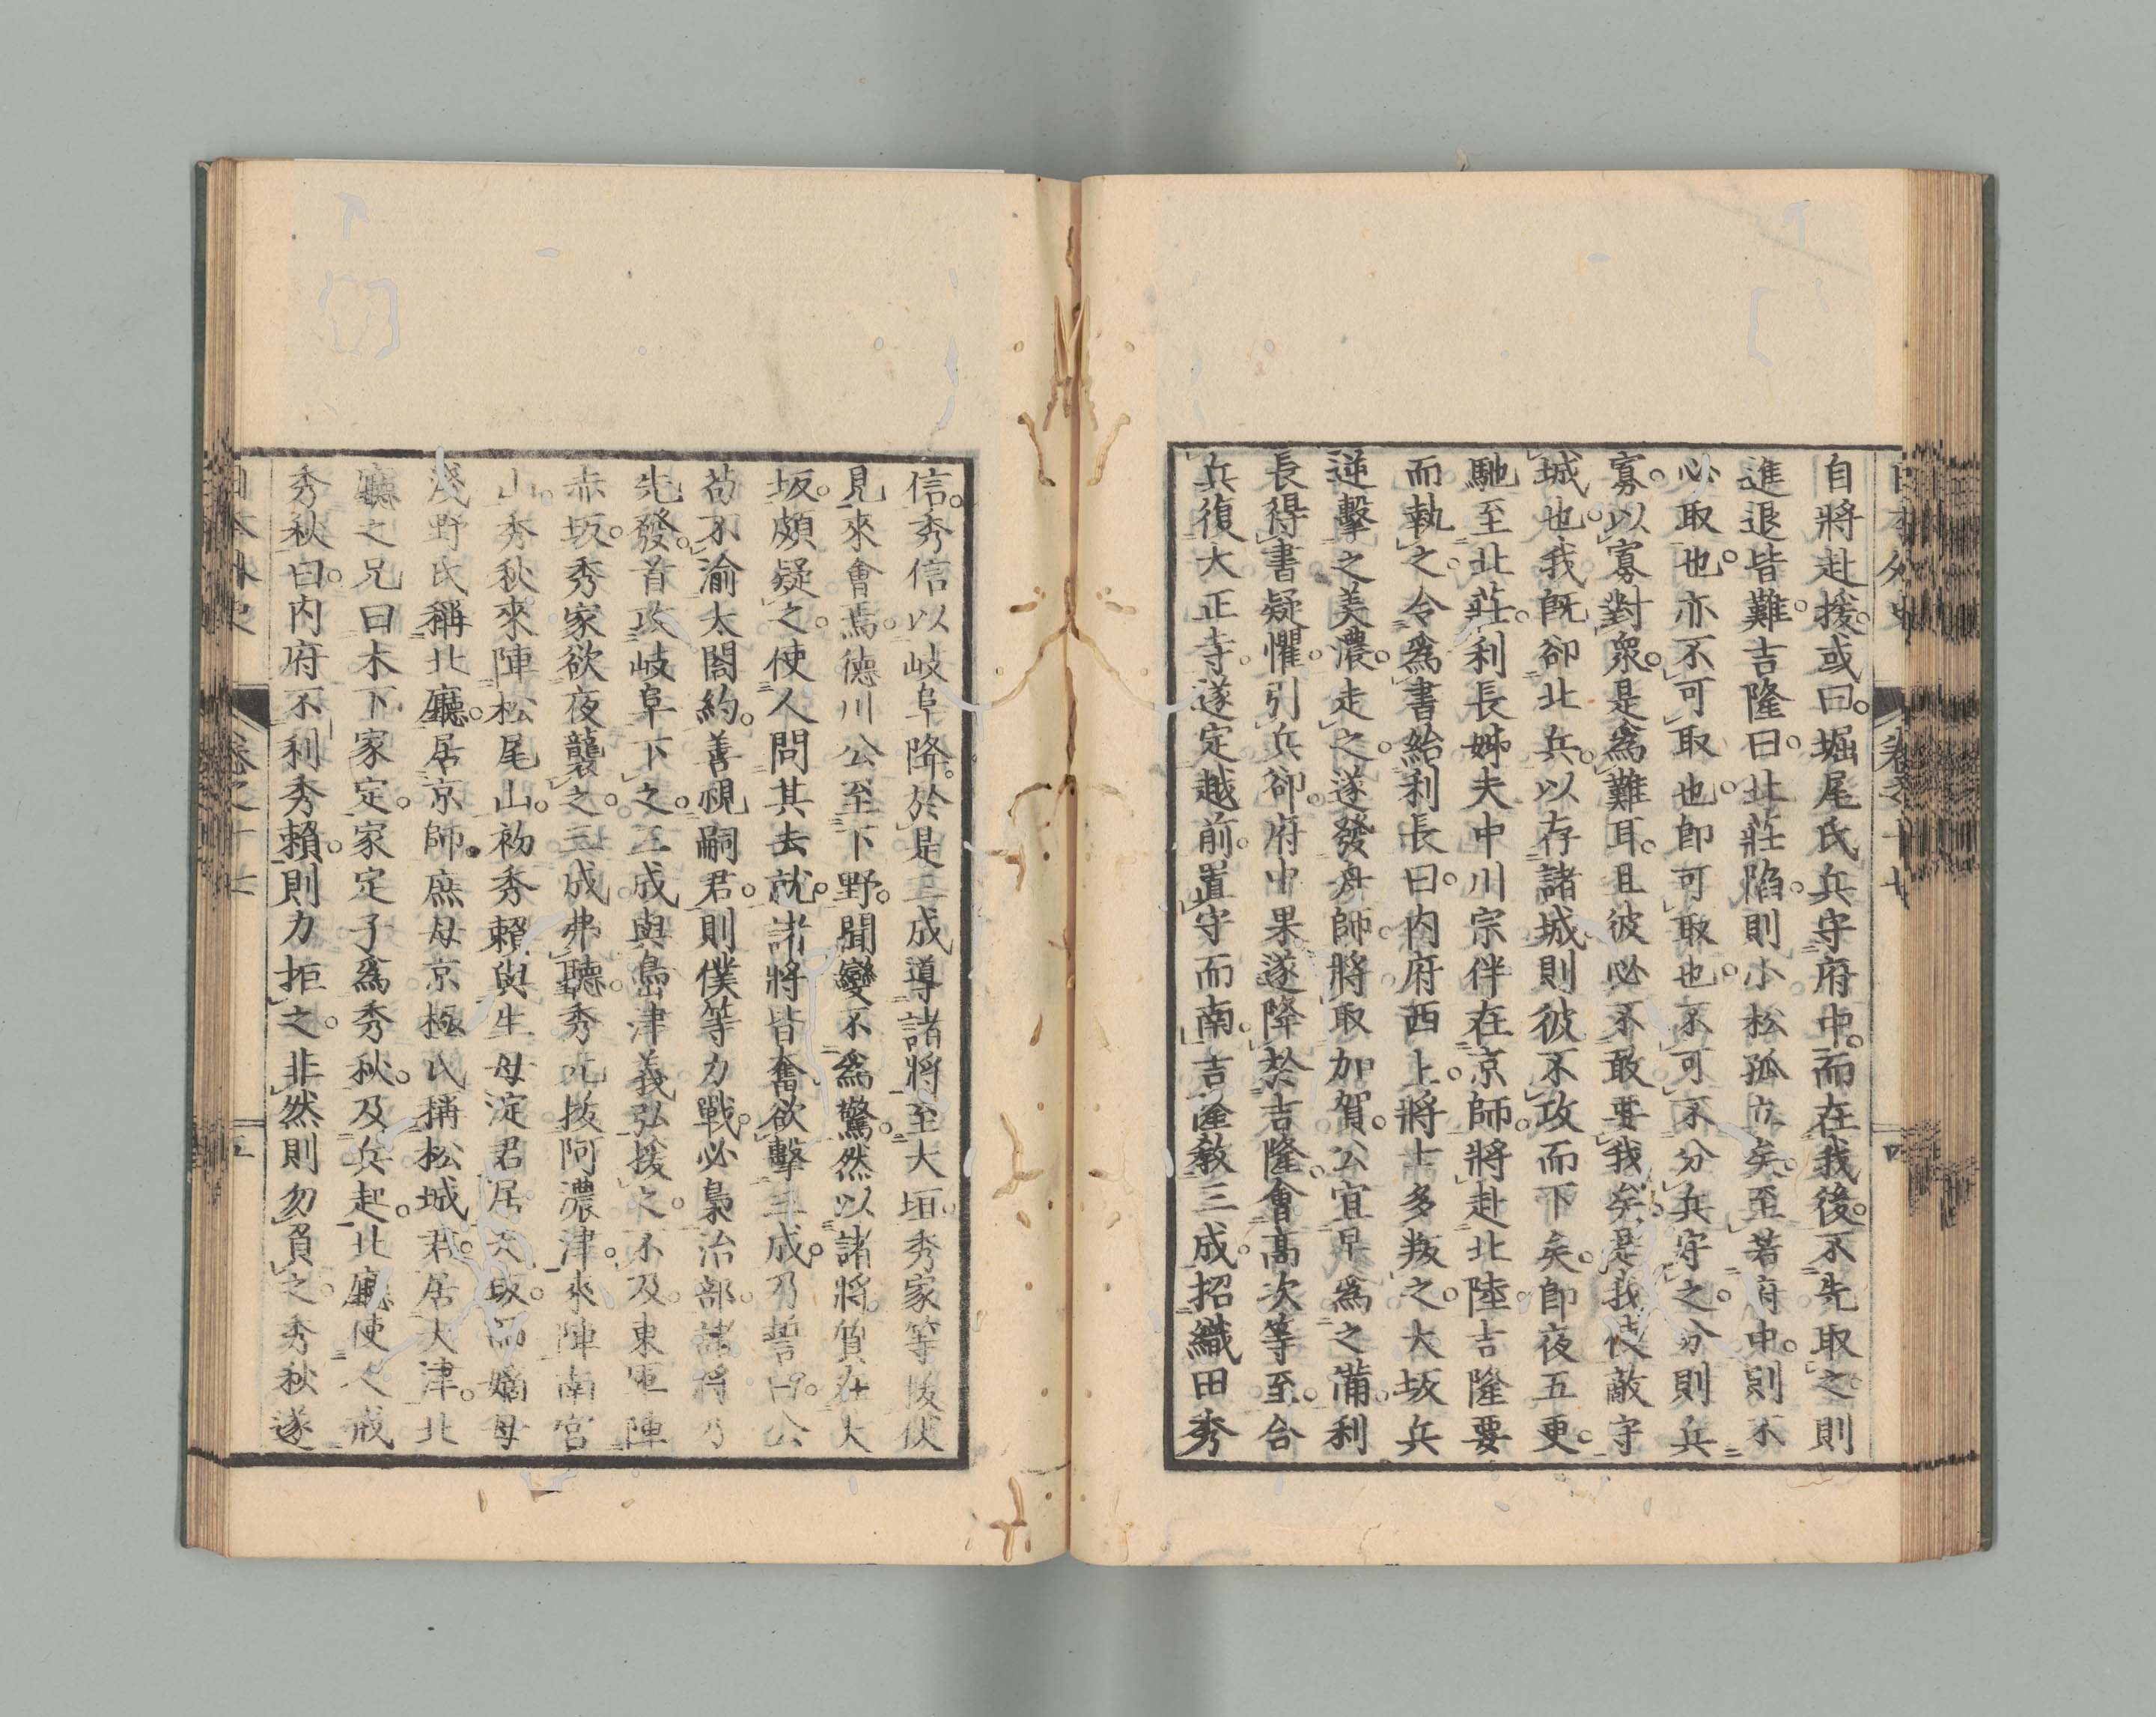 自將赴援。或曰。堀尾氏兵守府中。而在我後。不先取之。則
進退皆難。吉隆曰。北莊陷。則小松孤立矣。至若府中。則不
必取也。亦不可取也。卽可取也。不可不分兵守之。分則兵
寡。以寡對衆。是爲難耳。且彼必不敢要我矣。是我使敵守
城也。我既卻北兵。以存諸城。則彼不攻而下矣。卽夜五更。
馳至北莊。利長姊夫中川宗伴在京師。將赴北陸。吉隆要
而執之。令爲書紿利長曰。内府西上。將士多叛之。大坂兵
逆擊之美濃。走之。遂發舟師。將取加賀。公宜早爲之備。利
長得書疑懼。引兵卻。府中果遂降於吉隆。會高次等至。合
兵復大正寺。遂定越前。置守而南。吉隆敎三成。招織田秀
信。秀信以岐阜降。於是三成導諸將至大垣。秀家等後伏
見來會焉。德川公至下野。聞變不爲驚。然以諸將質在大
坂。頗疑之。使人問其去就。諸將皆奮欲擊三成。乃誓曰。公
苟不渝太閤約。善視嗣君。則僕等力戰。必梟治部。諸將乃
先發。首攻岐阜下之。三成與島津義弘援之。不及。東軍陣
赤坂。秀家欲夜襲之。三成弗聽。秀元拔阿濃津。來陣南宮
山。秀秋來陣松尾山。初秀賴與生母淀君居大坂。而嫡母
淺野氏稱北廳。居京師。庶母京極氏稱松城君。居大津。北
廳之兄曰木下家定。家定子爲秀秋。及兵起。北廳使人戒
秀秋曰。内府不利秀賴。則力拒之。非然則勿負之。秀秋遂